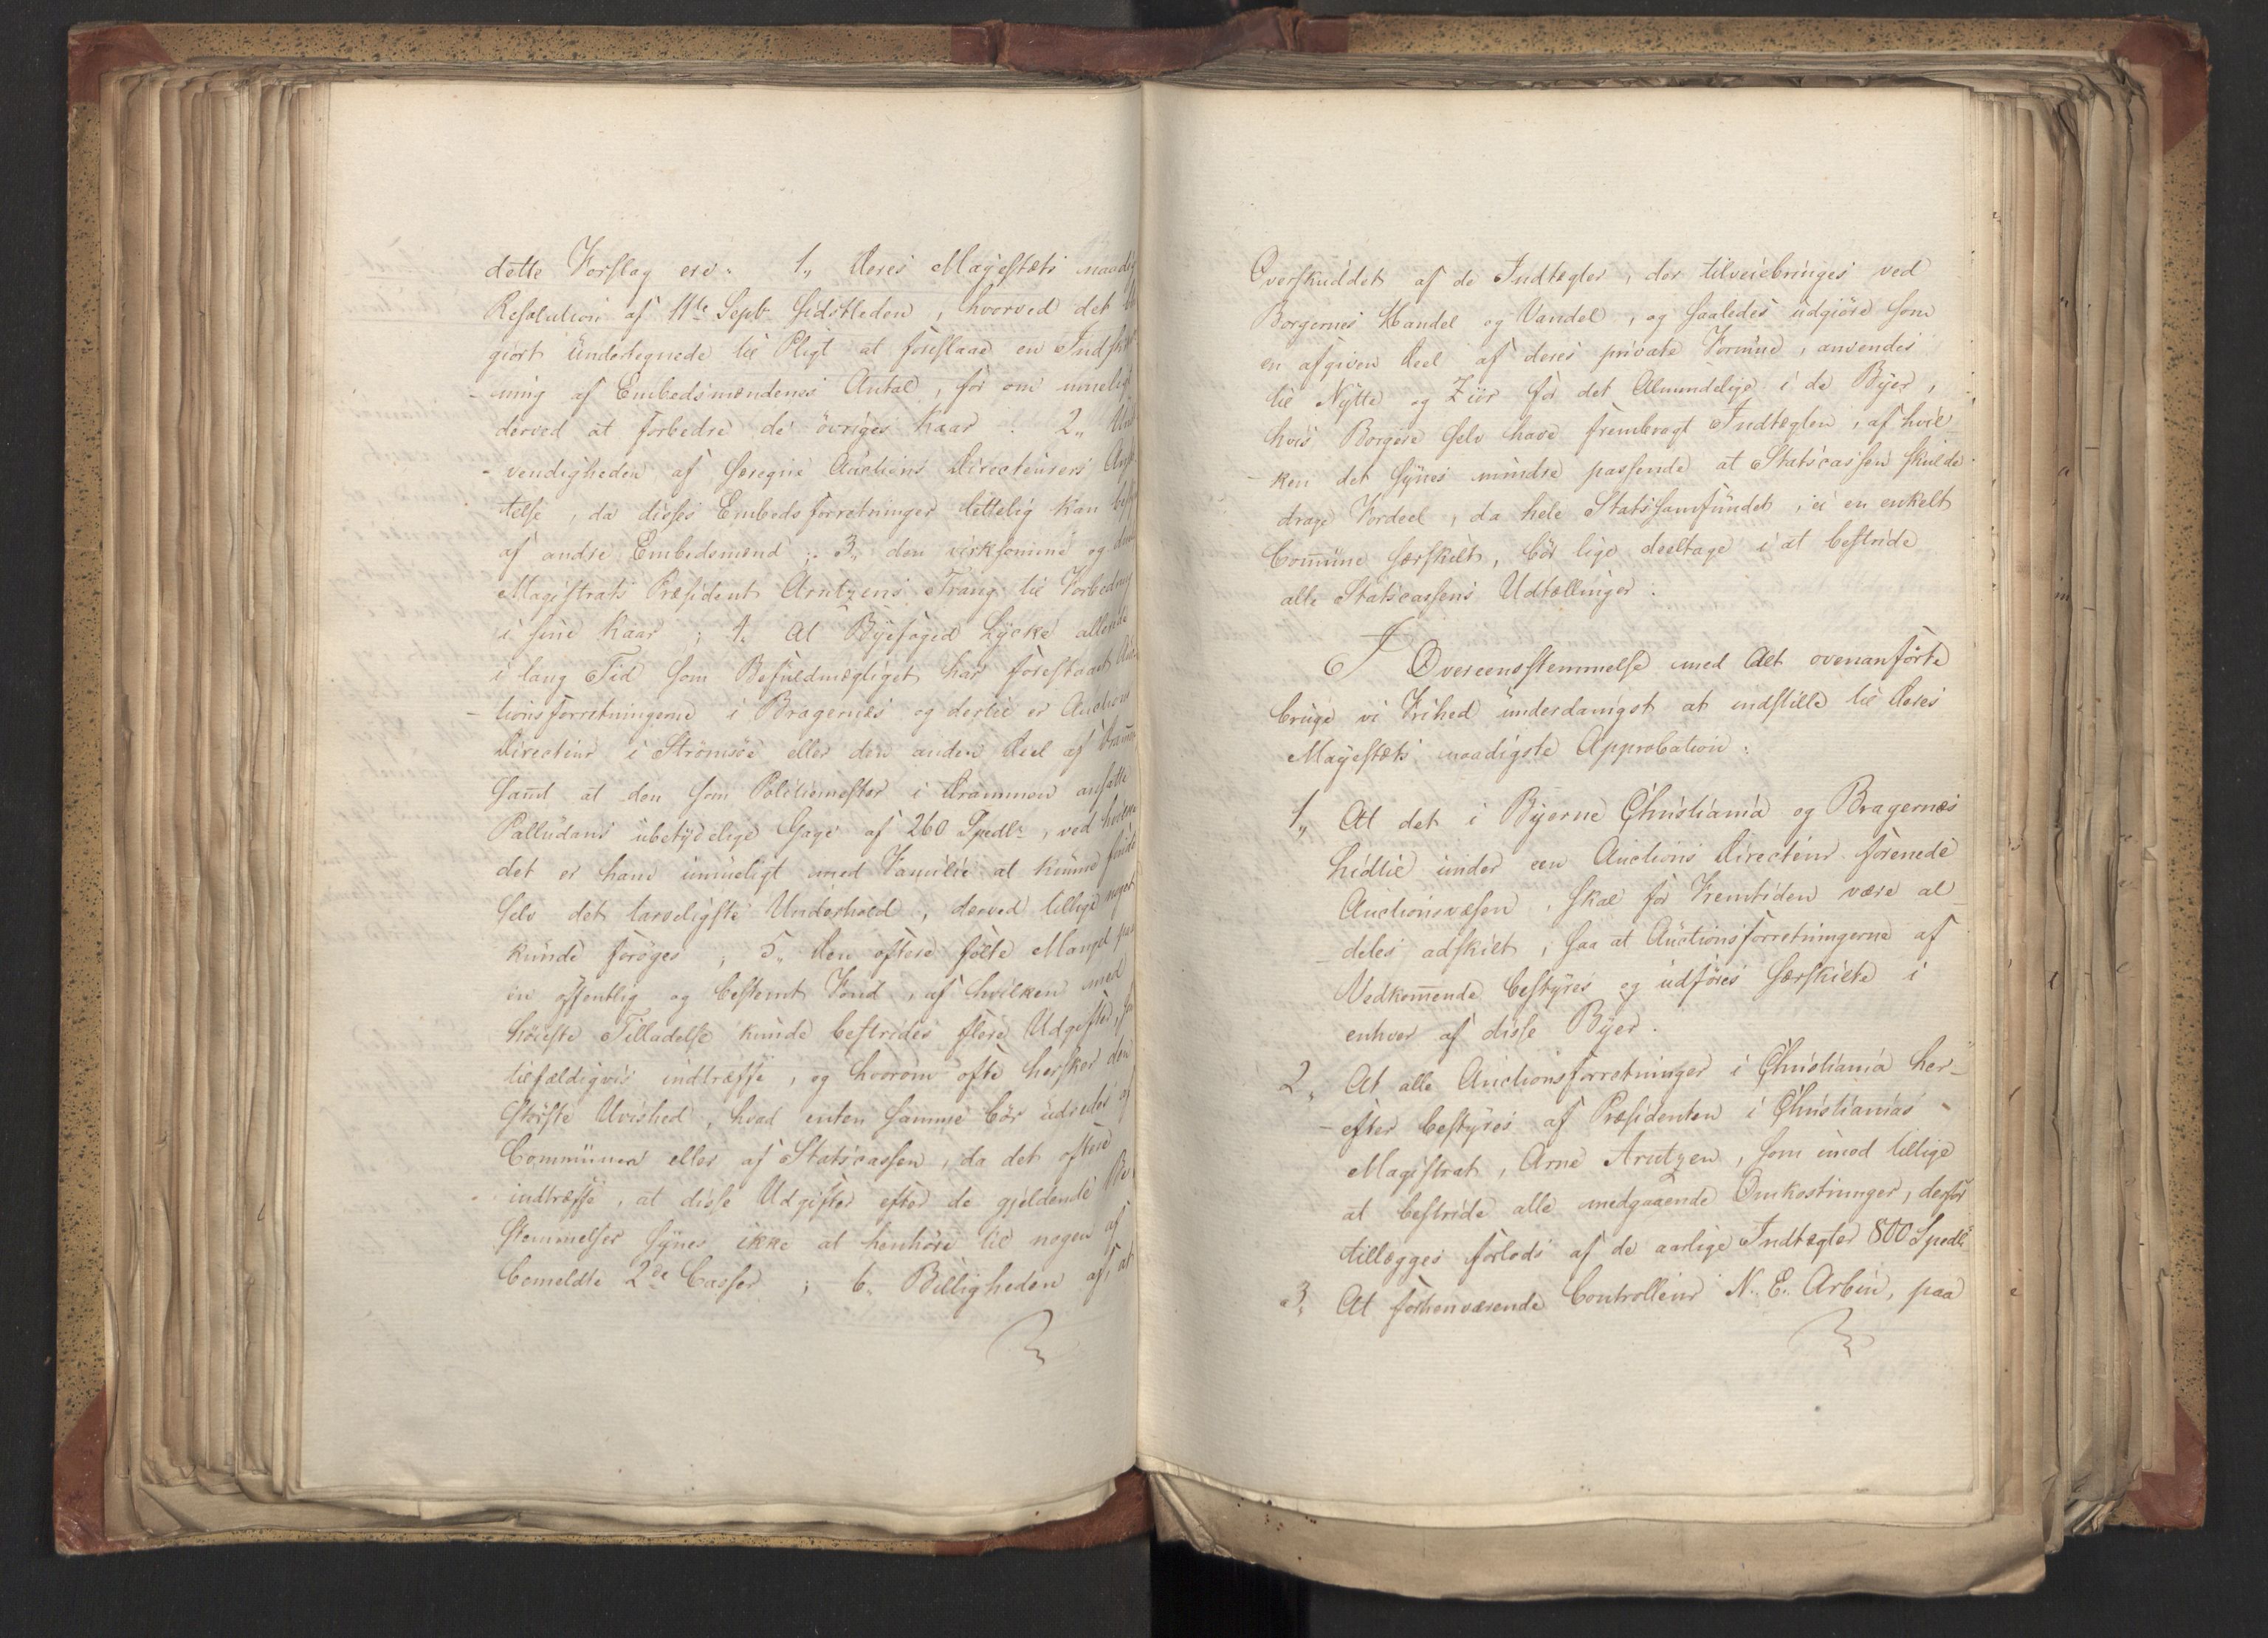 dette Forslag ere: 1,, Deres Majestæts naadig
Resolution af 11te Septr sidstleden, hvorved det
giort Undertegnede til Pligt at foreslaae en Indskr
-ning af Embedsmændenes Antal, for om mueligt
derved at forbedre de øvriges Kaar. 2,,
-vendigheden af særegne Auctions Directeurers
telse, da disses Embedsforretninger lettelig kan
af andre Embedsmænd; 3,, den virksomme og
Magistrats Præsident Arntzens Trang til Forbedring
i sine Kaar; 4. At Byefoged Lycke allerede
i lang Tid som Befuldmægtiget har forestaaet Auc
-tionsforretningerne i Bragernæs og dertil er Auctions
Directeur i Strømsøe eller den anden Deel af Dramm
samt at den som Politiemester i Drammen ansatte
Palludans ubetydelige Gage af 260 Spedlr, ved hvilken
det er ham umueligt med Familie at kunne finde
selv det tarveligste Underhold, derved tillige noget
kunde forøges; 5,, Den oftere følte Mangel paa
en offentlig og bestemt Fond, af hvilken med
høieste Tilladelse kunde bestrides flere Udgifter,
tilfældigviis indtræffe, og hvorom ofte hersker den
største Uvished, hvad enten samme bør udredes af
Communen eller af Statscassen, da det oftere
indtræffe, at disse Udgifter efter de gjeldende Be
stemmelser synes ikke at henhøre til nogen af
bemeldte 2de Casser; 6. Billigheden af, at
Overskuddet af de Indtægter, der tilveiebringes ved
Borgernes Handel og Vandel, og saaledes udgiøre som
en afgiven Deel af deres private Formue, anvendes
til Nytte og Ziir for det Almindelige i de Byer,
hvis Borgere selv have frembragt Indtægten, af hvil
-ken det synes mindre passende at Statscassen skulde
drage Fordeel, da hele Statssamfundet, ei en enkelt
Commune særskilt, bør lige deeltage i at bestride
alle Statscassens Udtællinger.
I Overeensstemmelse med Alt ovenanførte
bruge vi Frihed underdanigst at indstille til Deres
Majestæts naadigste Approbation:
1,, At det i Byerne Christiania og Bragernæs
hidtil under een Auctions Directeur forenede
Auctionsvæsen, skal for Fremtiden være al
-deles adskilt, saa at Auctionsforretningerne af
Vedkommende bestyres og udføres særskilte i
enhver af disse Byer.
2,, At alle Auctionsforretninger i Christiania her-
-efter bestyres af Præsidenten i Christianias
Magistrat, Arne Arntzen, som imod tillige
at bestride alle medgaaende Omkostninger, derfor
tillægges forlods af de aarlige Indtægter 800 Spedlr
3,, At forhenværende Controlleur N. E. Arbin, paa